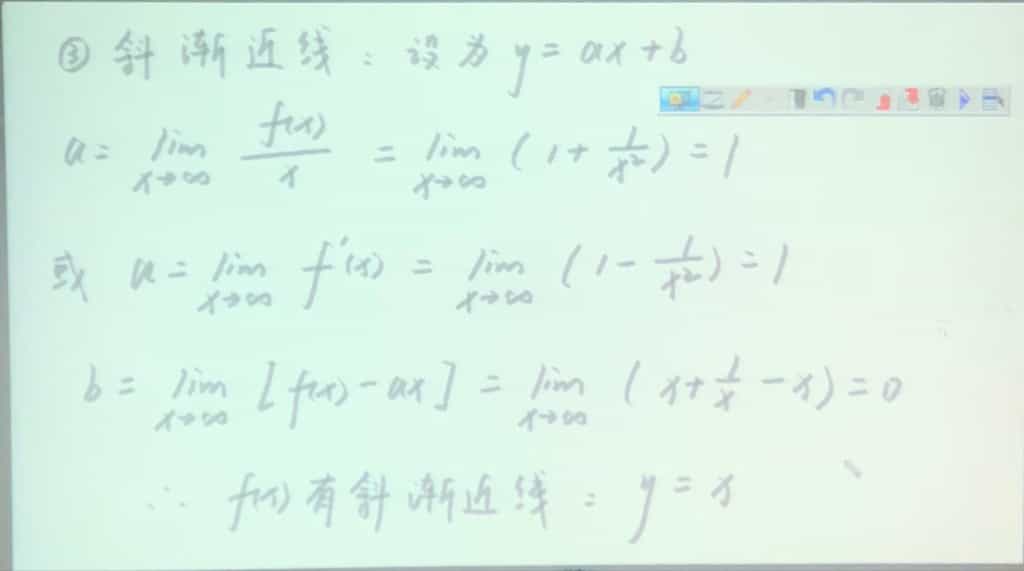 ③ 斜渐近线：设为 y = ax + b
a = lim x→∞ f(x)/x = lim x→∞ (1 + 1/x²) = 1
或 a = lim x→∞ f'(x) = lim x→∞ (1 - 1/x²) = 1
b = lim x→∞ [f(x) - ax] = lim x→∞ (x + 1/x - x) = 0
∴ f(x)有斜渐近线：y = x